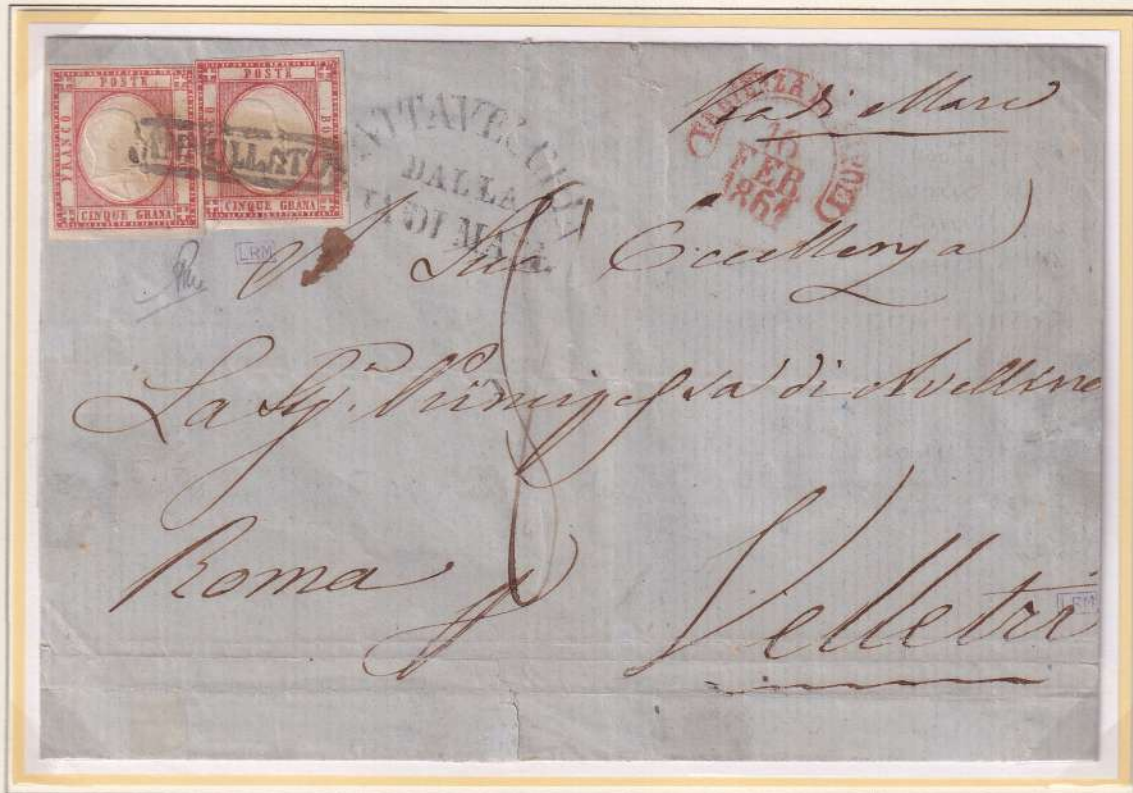 POSTE
FRANCO
CINQUE GRANA
POSTE
BO
CINQUE GRANA
ANNULLATO
DALLA
VIA DI MARE
FEB
1861
Via di Mare
LRM
A Sua Eccellenza
La Sig.ra Principessa di Avellino
Roma p
Velletri
LRM
8